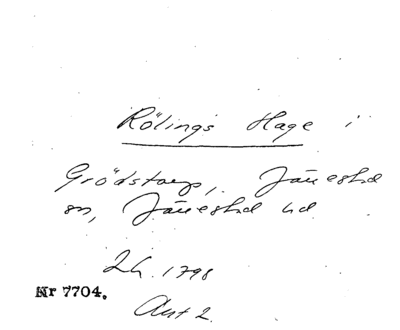 Rölings Hage i
Grödstorp, Järrestad
sn, Järrestad hd.
Lh. 1798
Nr 7704.
Akt 2.